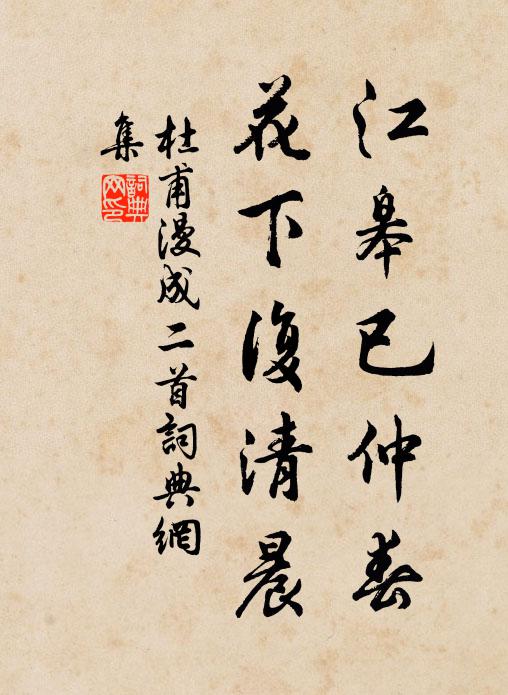 江皋已仲春
花下復清晨
杜甫漫成二首詞典網
集
詞典
网印